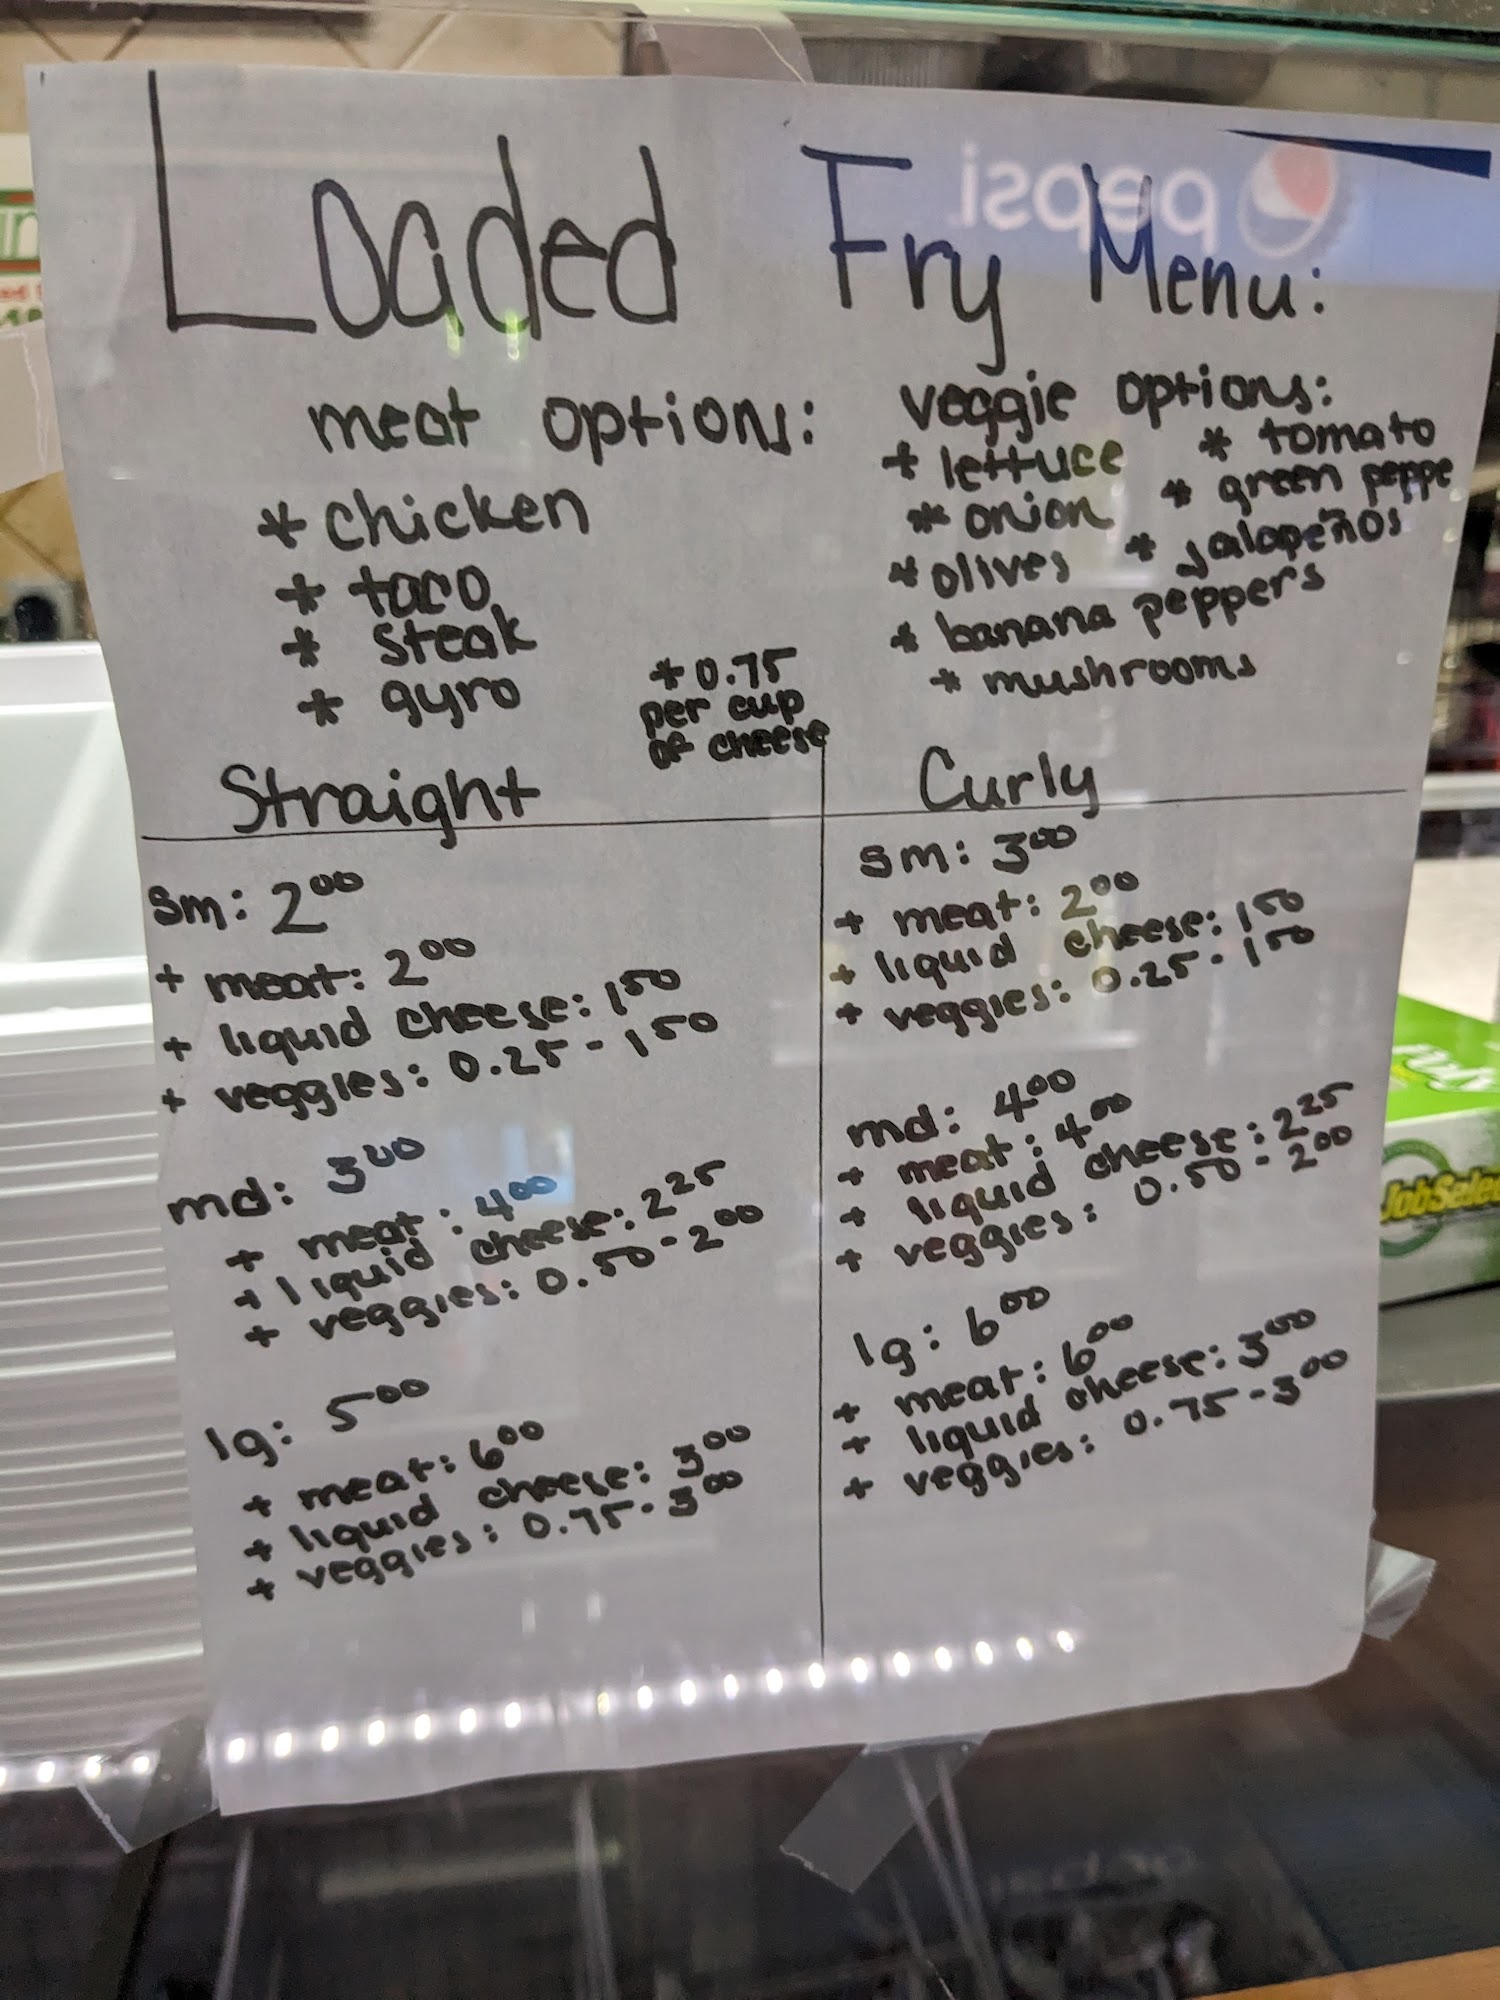 Loaded Fry Menu:
pepsi
meat options:
* chicken
* taco
* steak
* gyro
* 0.75
per cup
of cheese
veggie options:
* lettuce * tomato
* onion * green peppe
* olives * jalapeños
* banana peppers
* mushrooms
Straight
sm: 2.00
+ meat: 2.00
+ liquid cheese: 1.50
+ veggies: 0.25 - 1.50
md: 3.00
+ meat: 4.00
+ liquid cheese: 2.25
+ veggies: 0.50 - 2.00
lg: 5.00
+ meat: 6.00
+ liquid cheese: 3.00
+ veggies: 0.75 - 3.00
Curly
sm: 3.00
+ meat: 2.00
+ liquid cheese: 1.50
+ veggies: 0.25 - 1.50
md: 4.00
+ meat: 4.00
+ liquid cheese: 2.25
+ veggies: 0.50 - 2.00
lg: 6.00
+ meat: 6.00
+ liquid cheese: 3.00
+ veggies: 0.75 - 3.00
JobSele